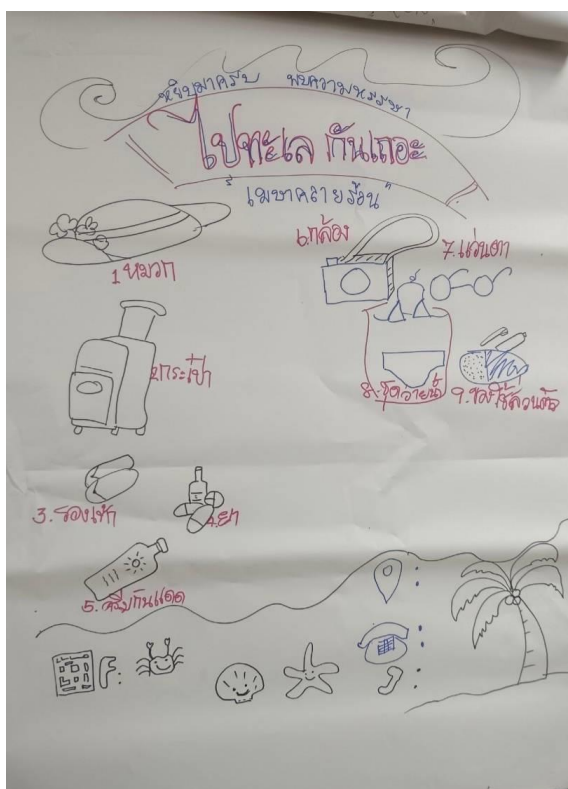 หยิบมาครับ พบความหรรษา
ไปทะเล กันเถอะ
"เมษาคลายร้อน"
1 หมวก
2. กระเป๋า
3. รองเท้า
4. ยา
5. ครีมกันแดด
6. กล้อง
7. แว่นตา
8. ชุดว่ายน้ำ
9. ของใช้ส่วนตัว
F: